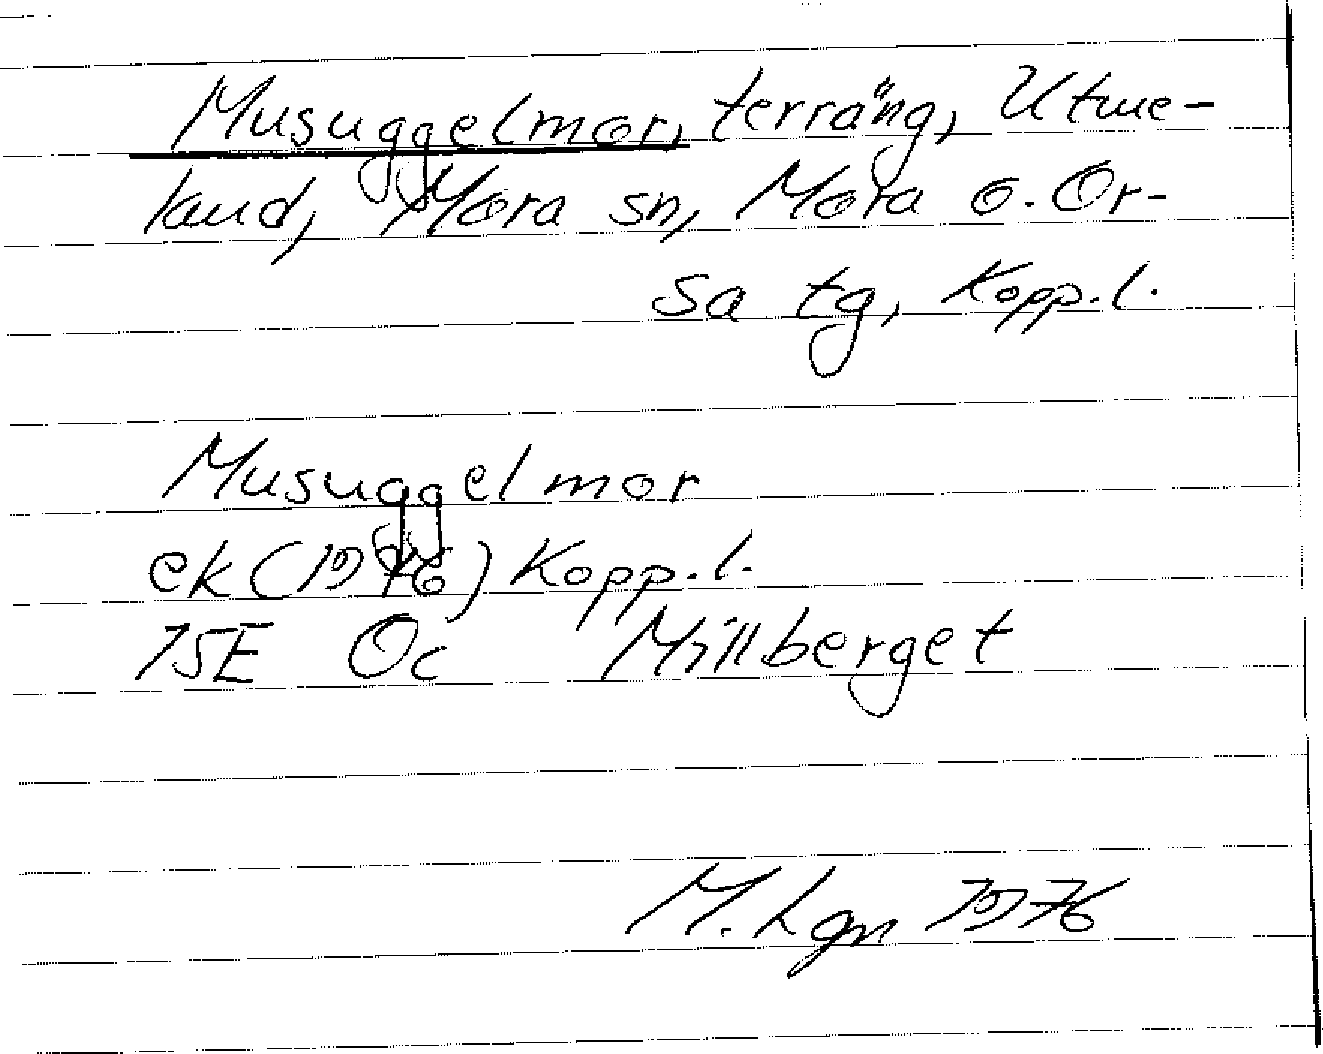 Musuggelmor, terräng, Utme-
land, Mora sn, Mora o. Or-
sa tg, Kopp.l.
Musuggelmor
ek (1976) Kopp.l.
15E Oc Millberget
M. Lgn 1976